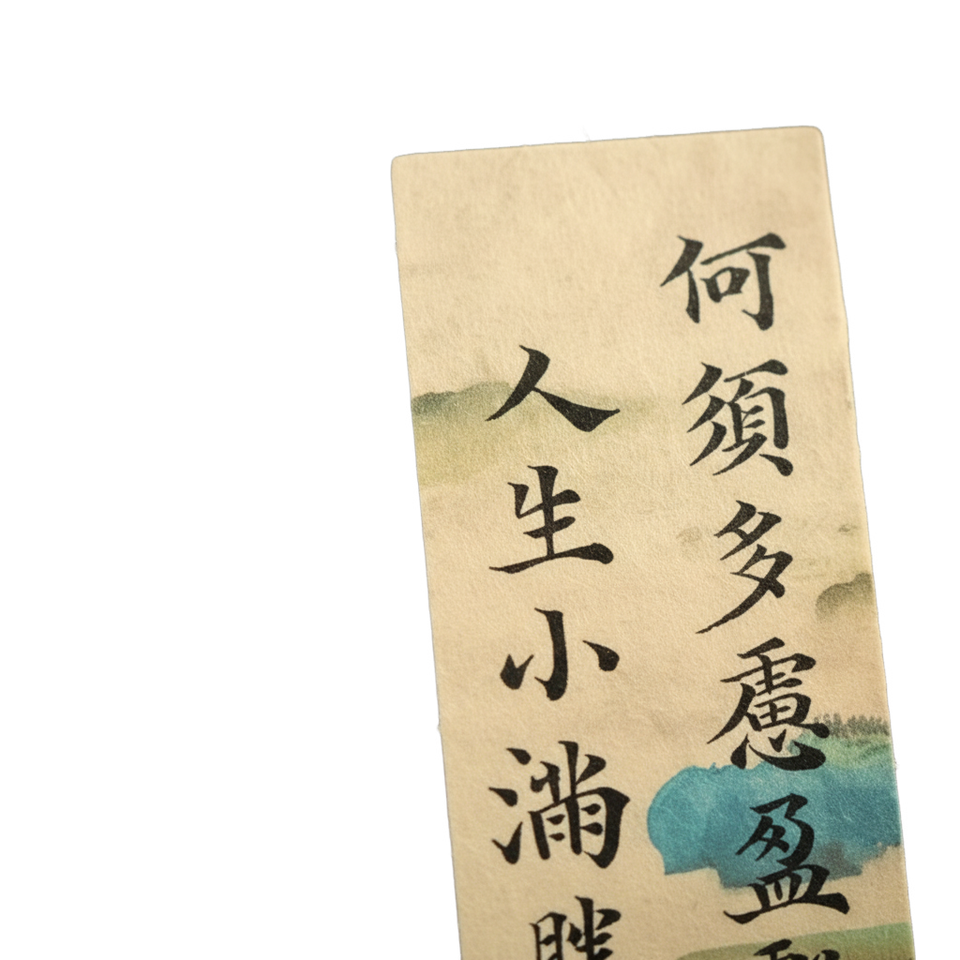 何須多慮盈
人生小滿